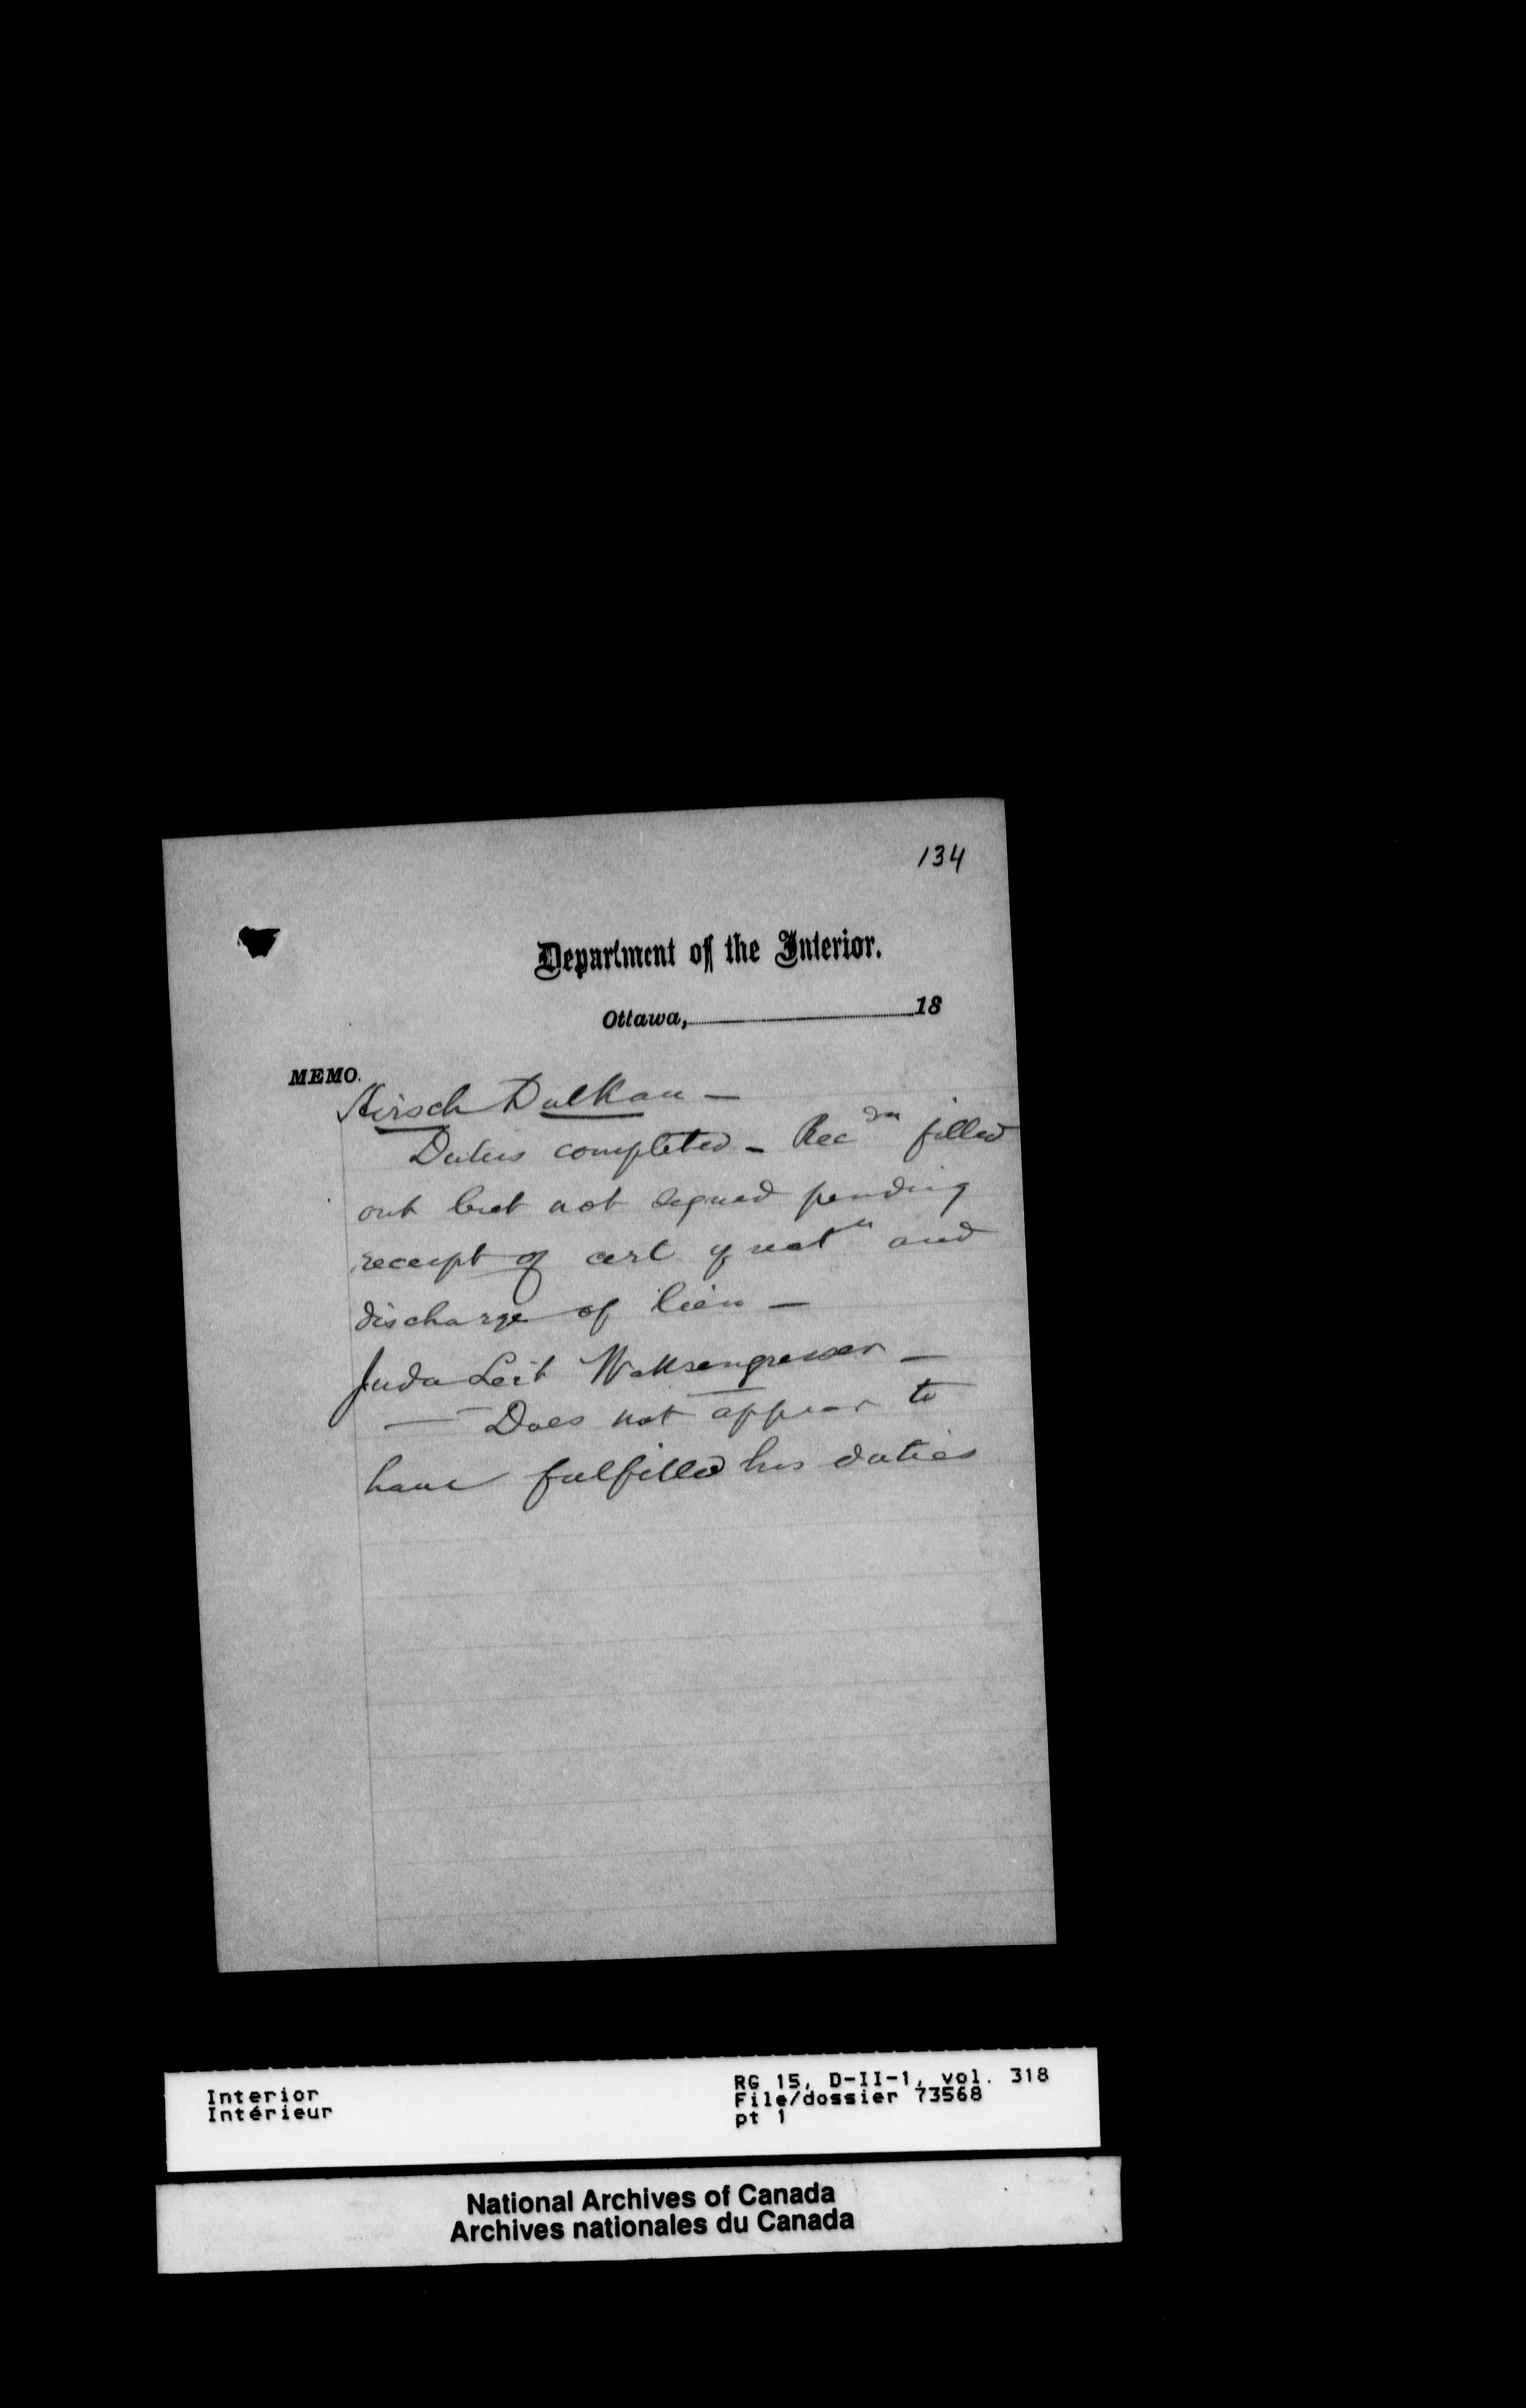 134
Department of the Interior.
Ottawa, 18
MEMO.
Hirsch Dulkan —
Duties completed — Rec^dn filled
out but not signed pending
receipt of cert of nat^n and
discharge of lien —
Juda Leib Waksengresser —
— Does not appear to
have fulfilled his duties
Interior
Intérieur
RG 15, D-II-1, vol. 318
File/dossier 73568
pt 1
National Archives of Canada
Archives nationales du Canada